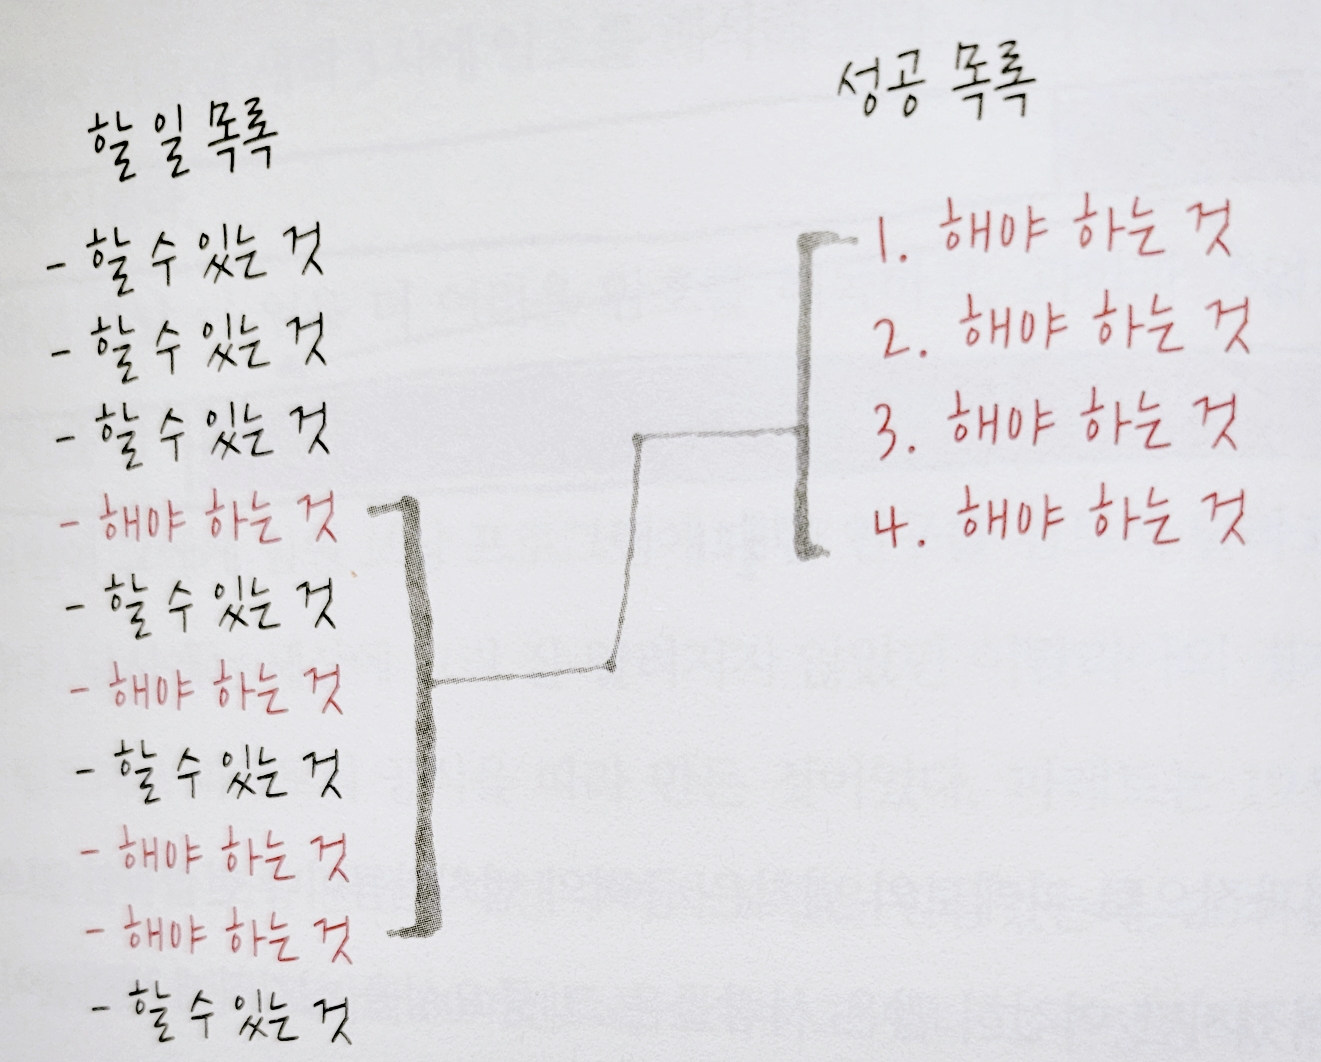 할 일 목록
- 할 수 있는 것
- 할 수 있는 것
- 할 수 있는 것
- 해야 하는 것
- 할 수 있는 것
- 해야 하는 것
- 할 수 있는 것
- 해야 하는 것
- 해야 하는 것
- 할 수 있는 것
성공 목록
1. 해야 하는 것
2. 해야 하는 것
3. 해야 하는 것
4. 해야 하는 것